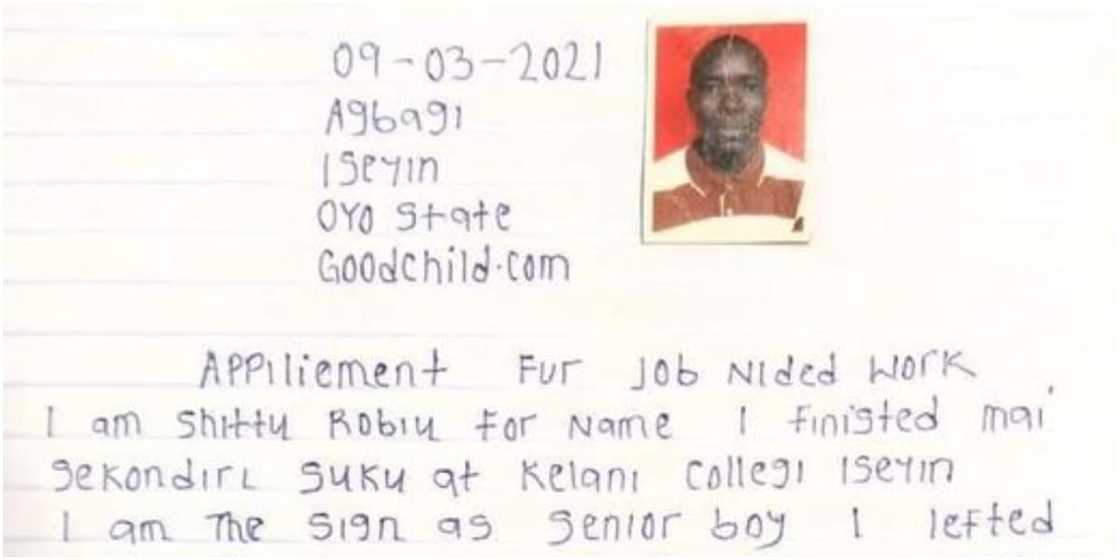 09-03-2021
Agbagi
Iseyin
OYO State
Goodchild.com
APPiliement Fur Job Nided Work
I am Shittu Robiu for Name I finisted mai
Sekondiri Suku at Kelani Collegi Iseyin
I am The Sign as Senior boy I lefted